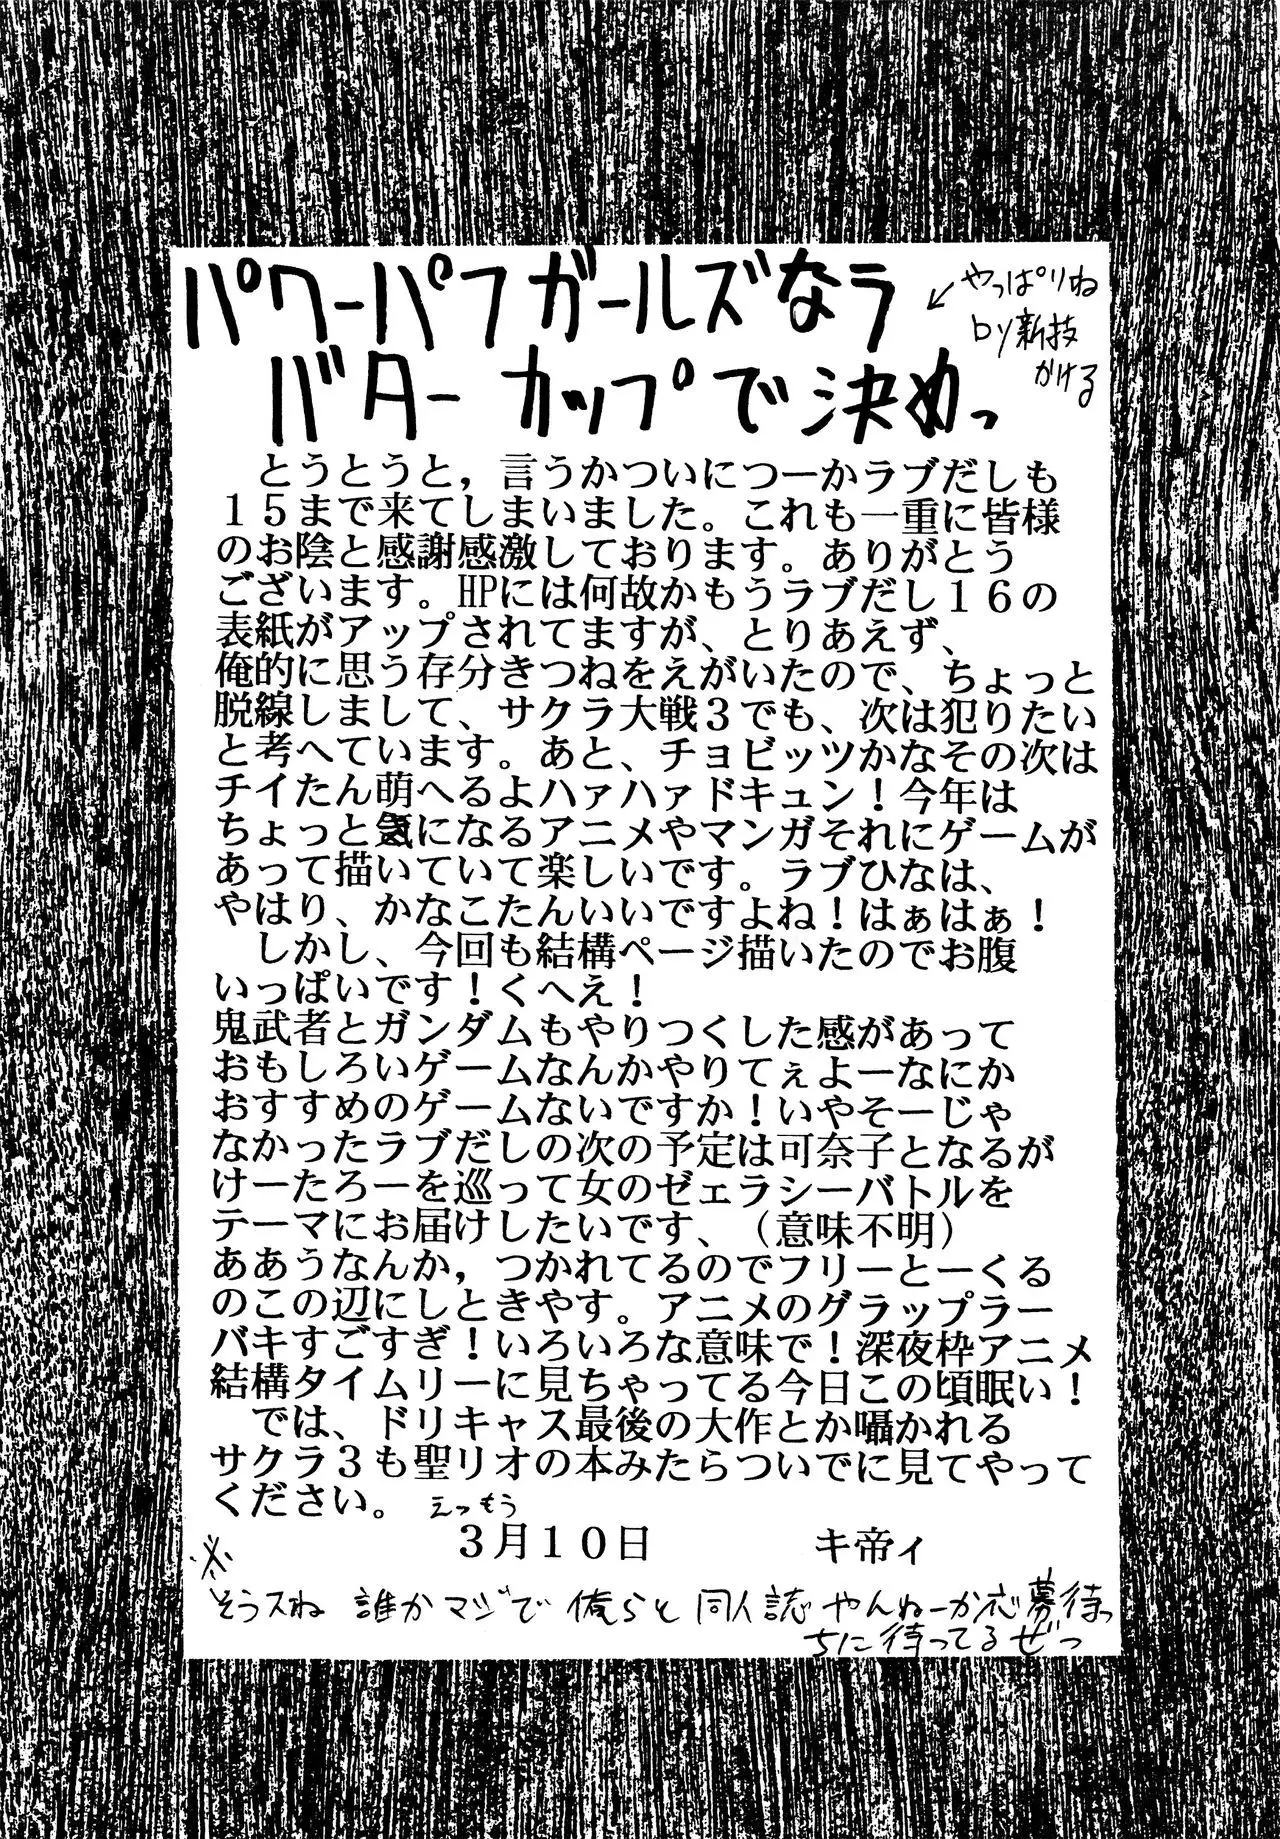 パワーパフガールズなラ
バターカップで決めっ
←やっぱりね
by新技
かける
とうとうと，言うかついにつーかラブだしも
１５まで来てしまいました。これも一重に皆様
のお陰と感謝感激しております。ありがとう
ございます。HPには何故かもうラブだし１６の
表紙がアップされてますが、とりあえず、
俺的に思う存分きつねをえがいたので、ちょっと
脱線しまして、サクラ大戦３でも、次は犯りたい
と考へています。あと、チョビッツかなその次は
チイたん萌へるよハァハァドキュン！今年は
ちょっと気になるアニメやマンガそれにゲームが
あって描いていて楽しいです。ラブひなは、
やはり、かなこたんいいですよね！はぁはぁ！
しかし、今回も結構ページ描いたのでお腹
いっぱいです！くへえ！
鬼武者とガンダムもやりつくした感があって
おもしろいゲームなんかやりてぇよーなにか
おすすめのゲームないですか！いやそーじゃ
なかったラブだしの次の予定は可奈子となるが
けーたろーを巡って女のゼェラシーバトルを
テーマにお届けしたいです、（意味不明）
ああうなんか，つかれてるのでフリーとーくる
のこの辺にしときやす。アニメのグラップラー
バキすごすぎ！いろいろな意味で！深夜枠アニメ
結構タイムリーに見ちゃってる今日この頃眠い！
では、ドリキャス最後の大作とか囁かれる
サクラ３も聖リオの本みたらついでに見てやって
ください。 えっもう
３月１０日 キ帝ィ
※
そうスね 誰かマジで 俺らと 同人誌 やんねーか応募待っ
ちに待ってるぜっ